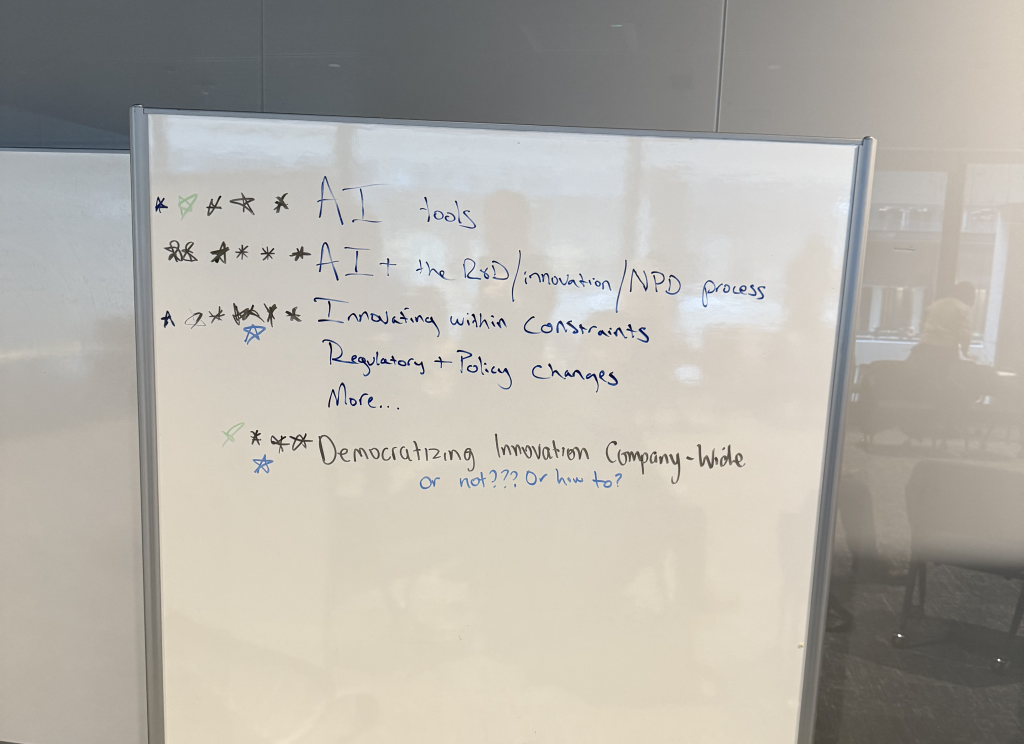 AI tools
AI + the R&D/innovation/NPD process
Innovating within constraints
Regulatory + Policy changes
More...
Democratizing Innovation Company-Wide
or not??? Or how to?